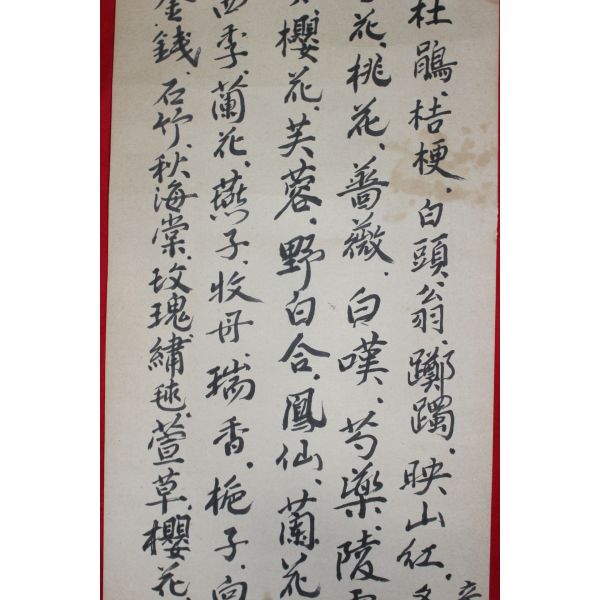 杜鵑、桔梗、白頭翁、躑躅、映山紅、
花、桃花、薔薇、白嘆、芍藥、陵
櫻花、芙蓉、野白合、鳳仙、蘭花
四季、蘭花、燕子、牧丹、瑞香、梔子、向
金錢、石竹、秋海棠、玫瑰、繡毬、萱草、櫻花、